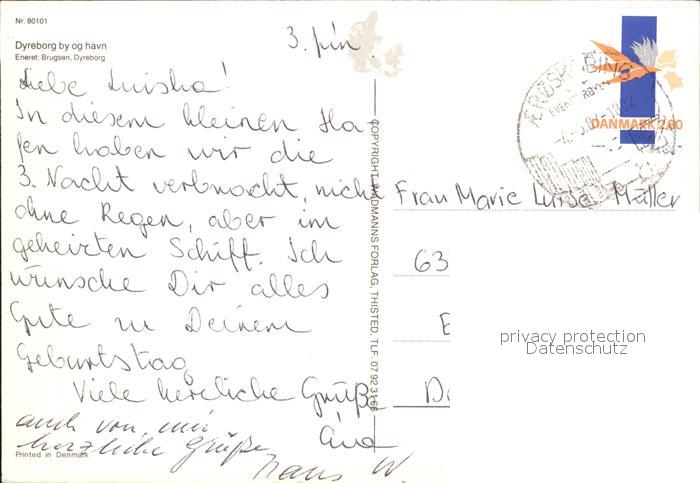 Nr. 80101
Dyreborg by og havn
Eneret: Brugsen, Dyreborg
Liebe Luisha!
In diesem kleinen Ha-
fen haben wir die
3. Nacht verbracht, nicht
ohne Regen, aber im
geheizten Schiff. Ich
wünsche Dir alles
Gute zu Deinem
Geburtstag
Viele herzliche Grüße
auch von mir
herzliche Grüße
Hans W.
Printed in Denmark
COPYRIGHT: THISTED, TLF. 07 92 31 66
DANMARK 2.80
ÆRØSKØBING
Frau Marie Luise Müller
63
privacy protection
Datenschutz